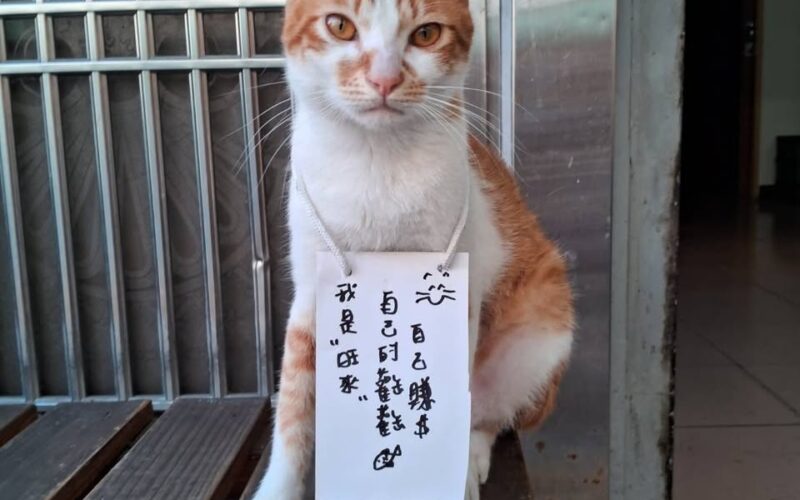 我是"旺來"
自己的罐罐
自己賺$